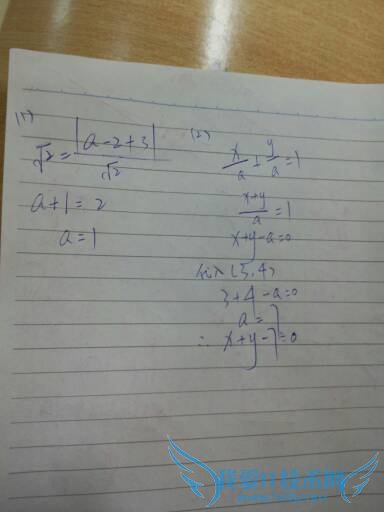 (1)
√2 = |a-2+3| / √2
a+1=2
a=1
(2)
x/a + y/a = 1
x+y/a = 1
x+y-a=0
代入(3,4)
3+4-a=0
a=7
∴ x+y-7=0